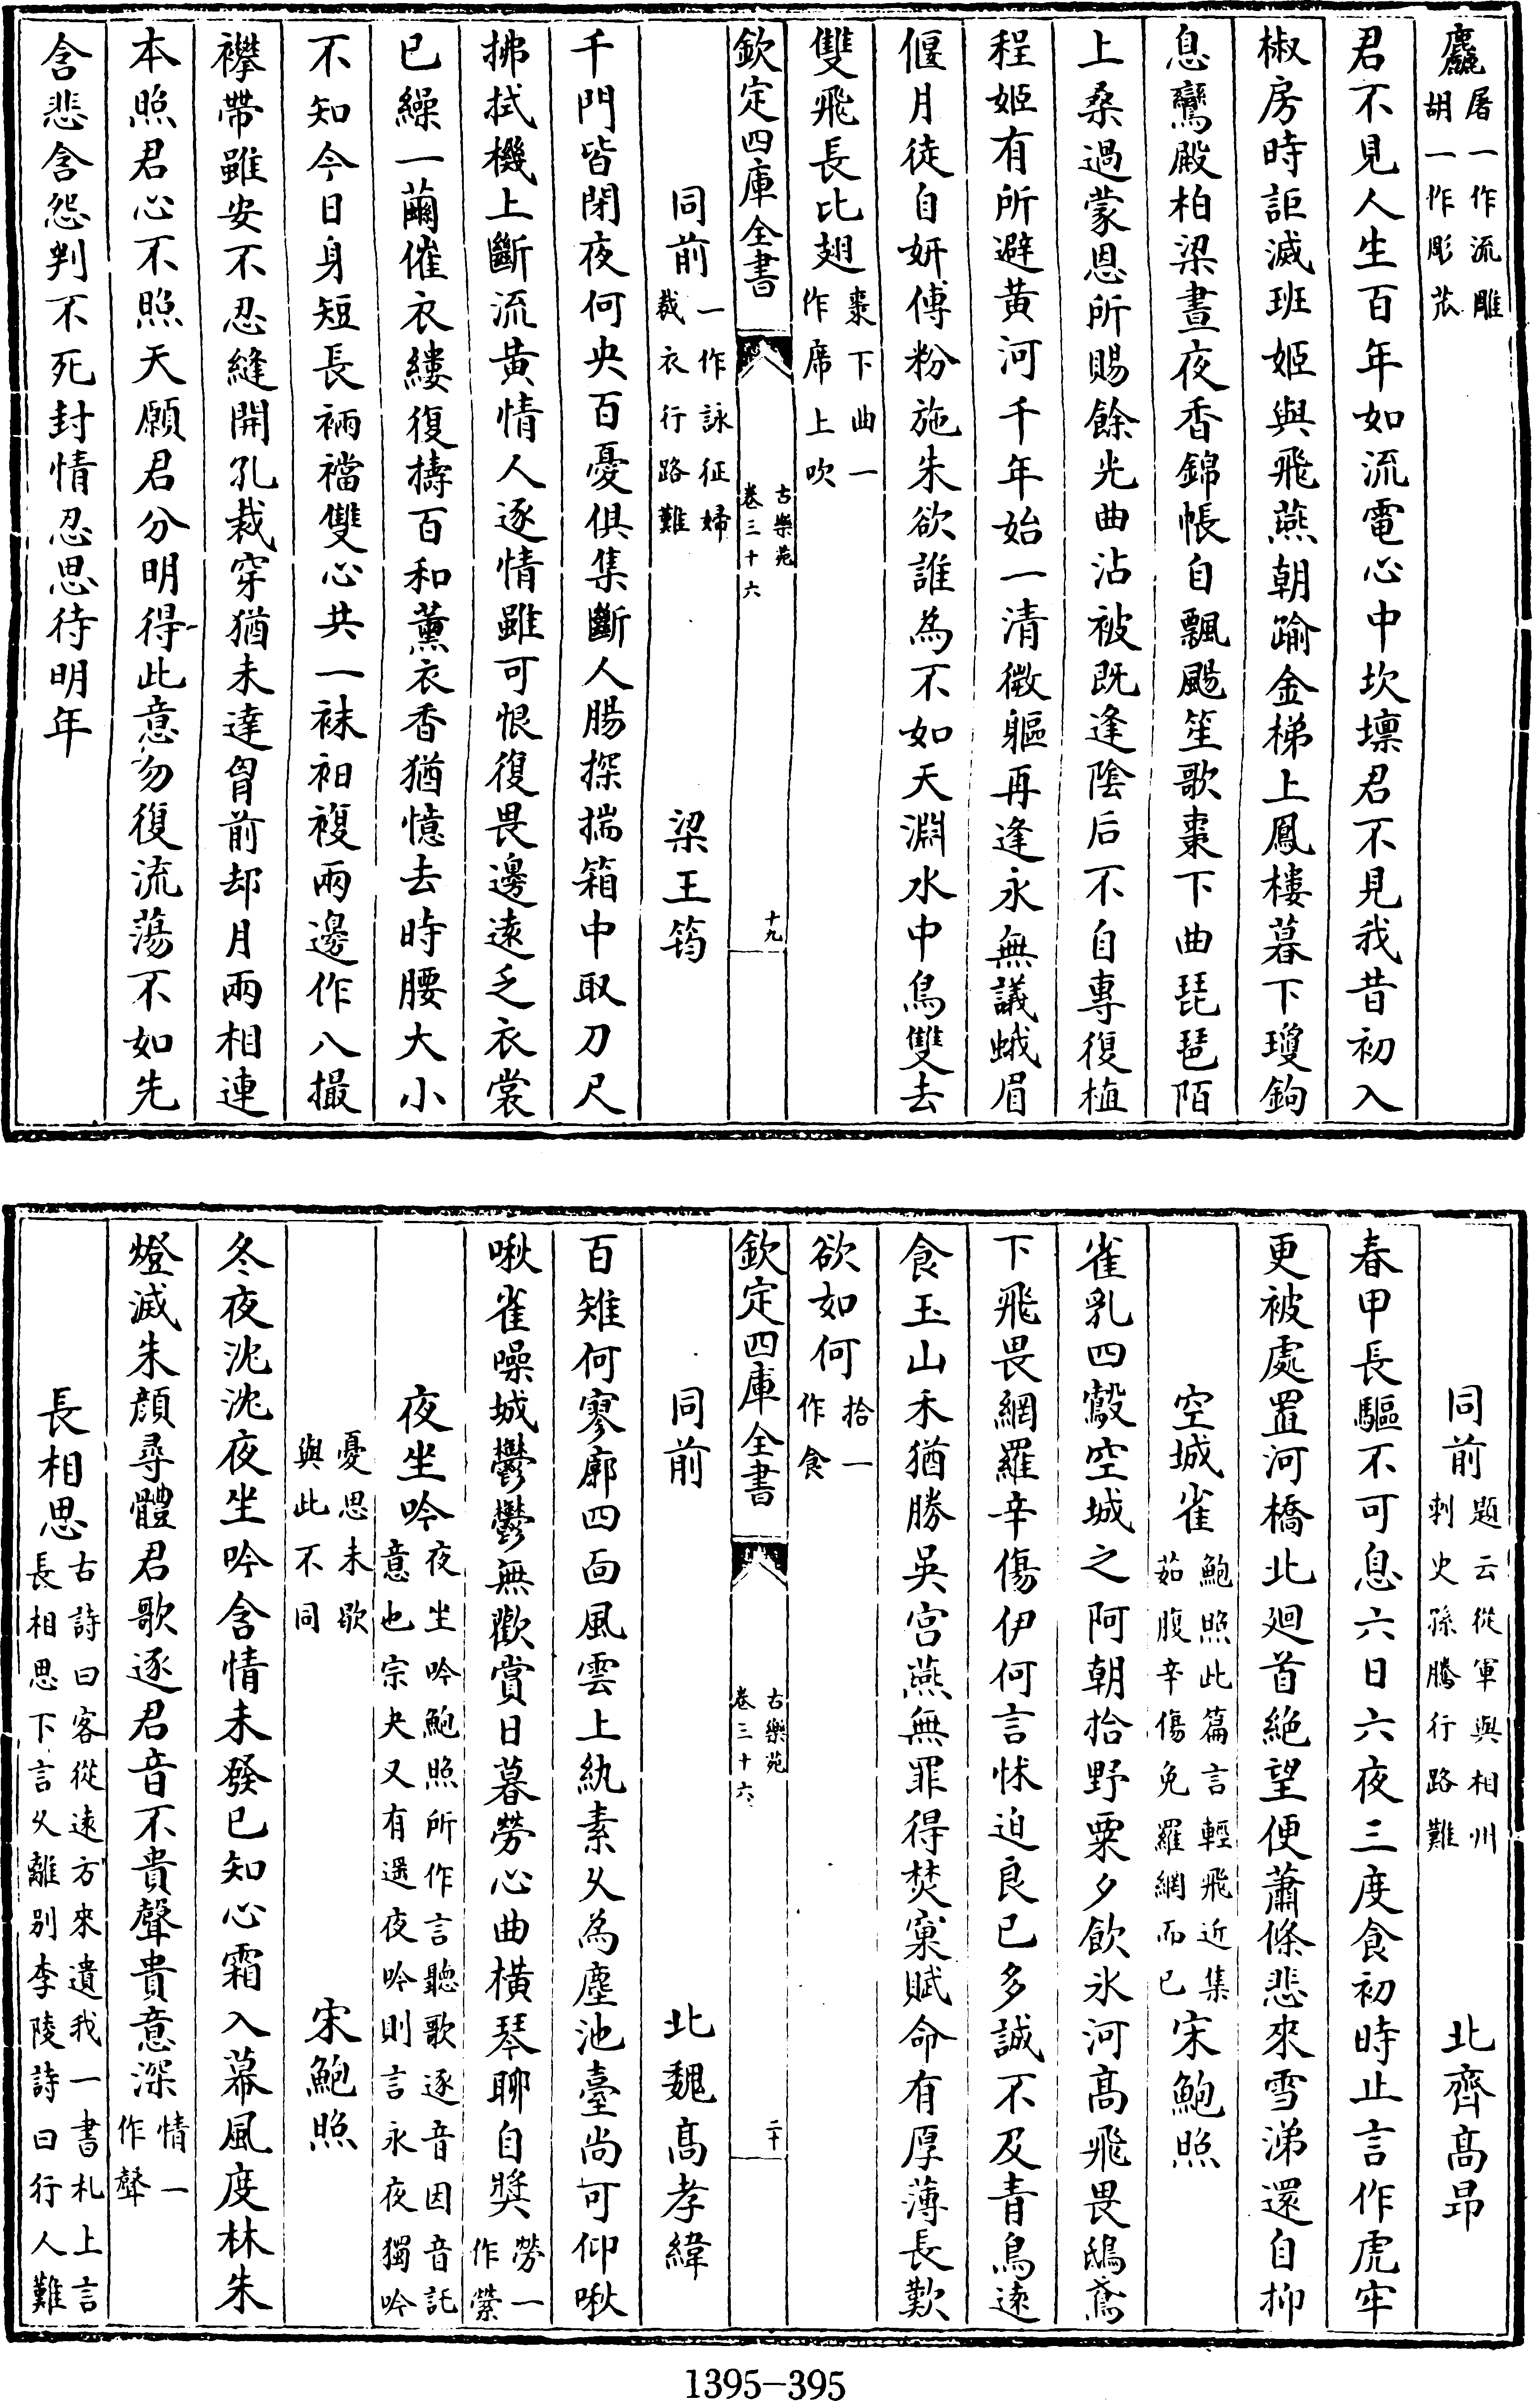 麤屠一作流雕胡一作彫苽
君不見人生百年如流電心中坎壈君不見我昔初入
椒房時詎滅班姬與飛燕朝踰金梯上鳳樓暮下瓊鉤
息鸞殿柏梁晝夜香錦帳自飄颺笙歌棗下曲琵琶陌
上桑過蒙恩所賜餘光曲沾被既逢陰后不自專復植
程姬有所避黃河千年始一清微軀再逢永無議蛾眉
偃月徒自妍傅粉施朱欲誰為不如天淵水中鳥雙去
雙飛長比翅棗下曲一作席上吹
欽定四庫全書
古樂苑
卷三十六
十九
同前一作詠征婦裁衣行路難
梁王筠
千門皆閉夜何央百憂俱集斷人腸探揣箱中取刀尺
拂拭機上斷流黃情人逐情雖可恨復畏邊遠乏衣裳
已繰一繭催衣縷復擣百和薰衣香猶憶去時腰大小
不知今日身短長裲襠雙心共一袜袙複兩邊作八撮
襻帶雖安不忍縫開孔裁穿猶未達胷前却月兩相連
本照君心不照天願君分明得此意勿復流蕩不如先
含悲含怨判不死封情忍思待明年
同前題云從軍與相州刺史孫騰行路難
北齊髙昂
春甲長驅不可息六日六夜三度食初時止言作虎牢
更被處置河橋北廻首絕望便蕭條悲來雪涕還自抑
空城雀鮑照此篇言輕飛近集茹腹辛傷免羅網而已
宋鮑照
雀乳四鷇空城之阿朝拾野粟夕飲氷河髙飛畏鴟鳶
下飛畏網羅辛傷伊何言怵迫良已多誠不及青鳥遠
食玉山禾猶勝吳宮燕無罪得焚窠賦命有厚薄長歎
欲如何拾一作食
欽定四庫全書
古樂苑
卷三十六
二十
同前
北魏髙孝緯
百雉何寥廓四面風雲上紈素乆為塵池臺尚可仰啾
啾雀噪城鬱鬱無歡賞日暮勞心曲橫琴聊自奬勞一作縈
夜坐吟夜坐吟鮑照所作言聽歌逐音因音託意也宗夬又有遥夜吟則言永夜獨吟
憂思未歇與此不同
宋鮑照
冬夜沈沈夜坐吟含情未發已知心霜入幕風度林朱
燈滅朱顔尋體君歌逐君音不貴聲貴意深情一作聲
長相思古詩曰客從遠方來遺我一書札上言長相思下言乆離別李陵詩曰行人難
1395-395